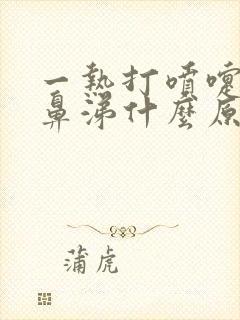 一熱打噴嚏
鼻涕什麼原
蒲虎